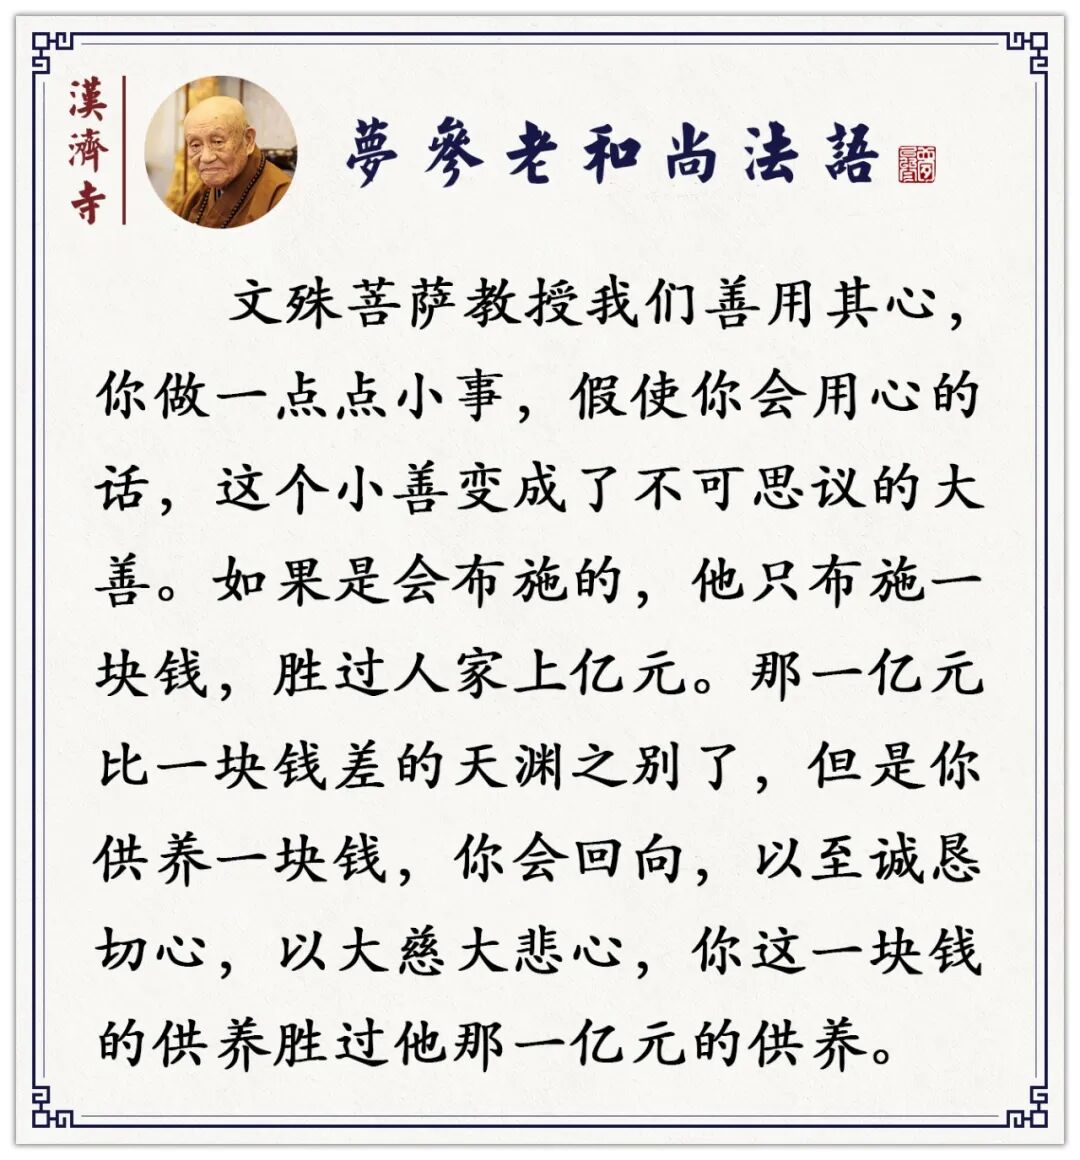 漢濟寺
夢參老和尚法語
文殊菩萨教授我们善用其心，
你做一点点小事，假使你会用心的
话，这个小善变成了不可思议的大
善。如果是会布施的，他只布施一
块钱，胜过人家上亿元。那一亿元
比一块钱差的天渊之别了，但是你
供养一块钱，你会回向，以至诚恳
切心，以大慈大悲心，你这一块钱
的供养胜过他那一亿元的供养。